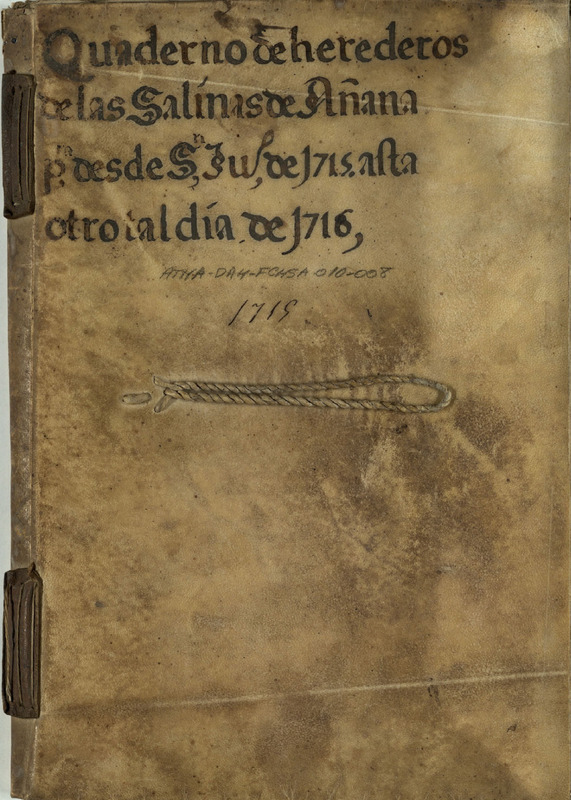 Quaderno de herederos
de las Salinas de Añana
pª desde Sⁿ Juº, de 1715. asta
otro tal dia de 1716,
ATHA-DAH-FCHSA-010-008
1715